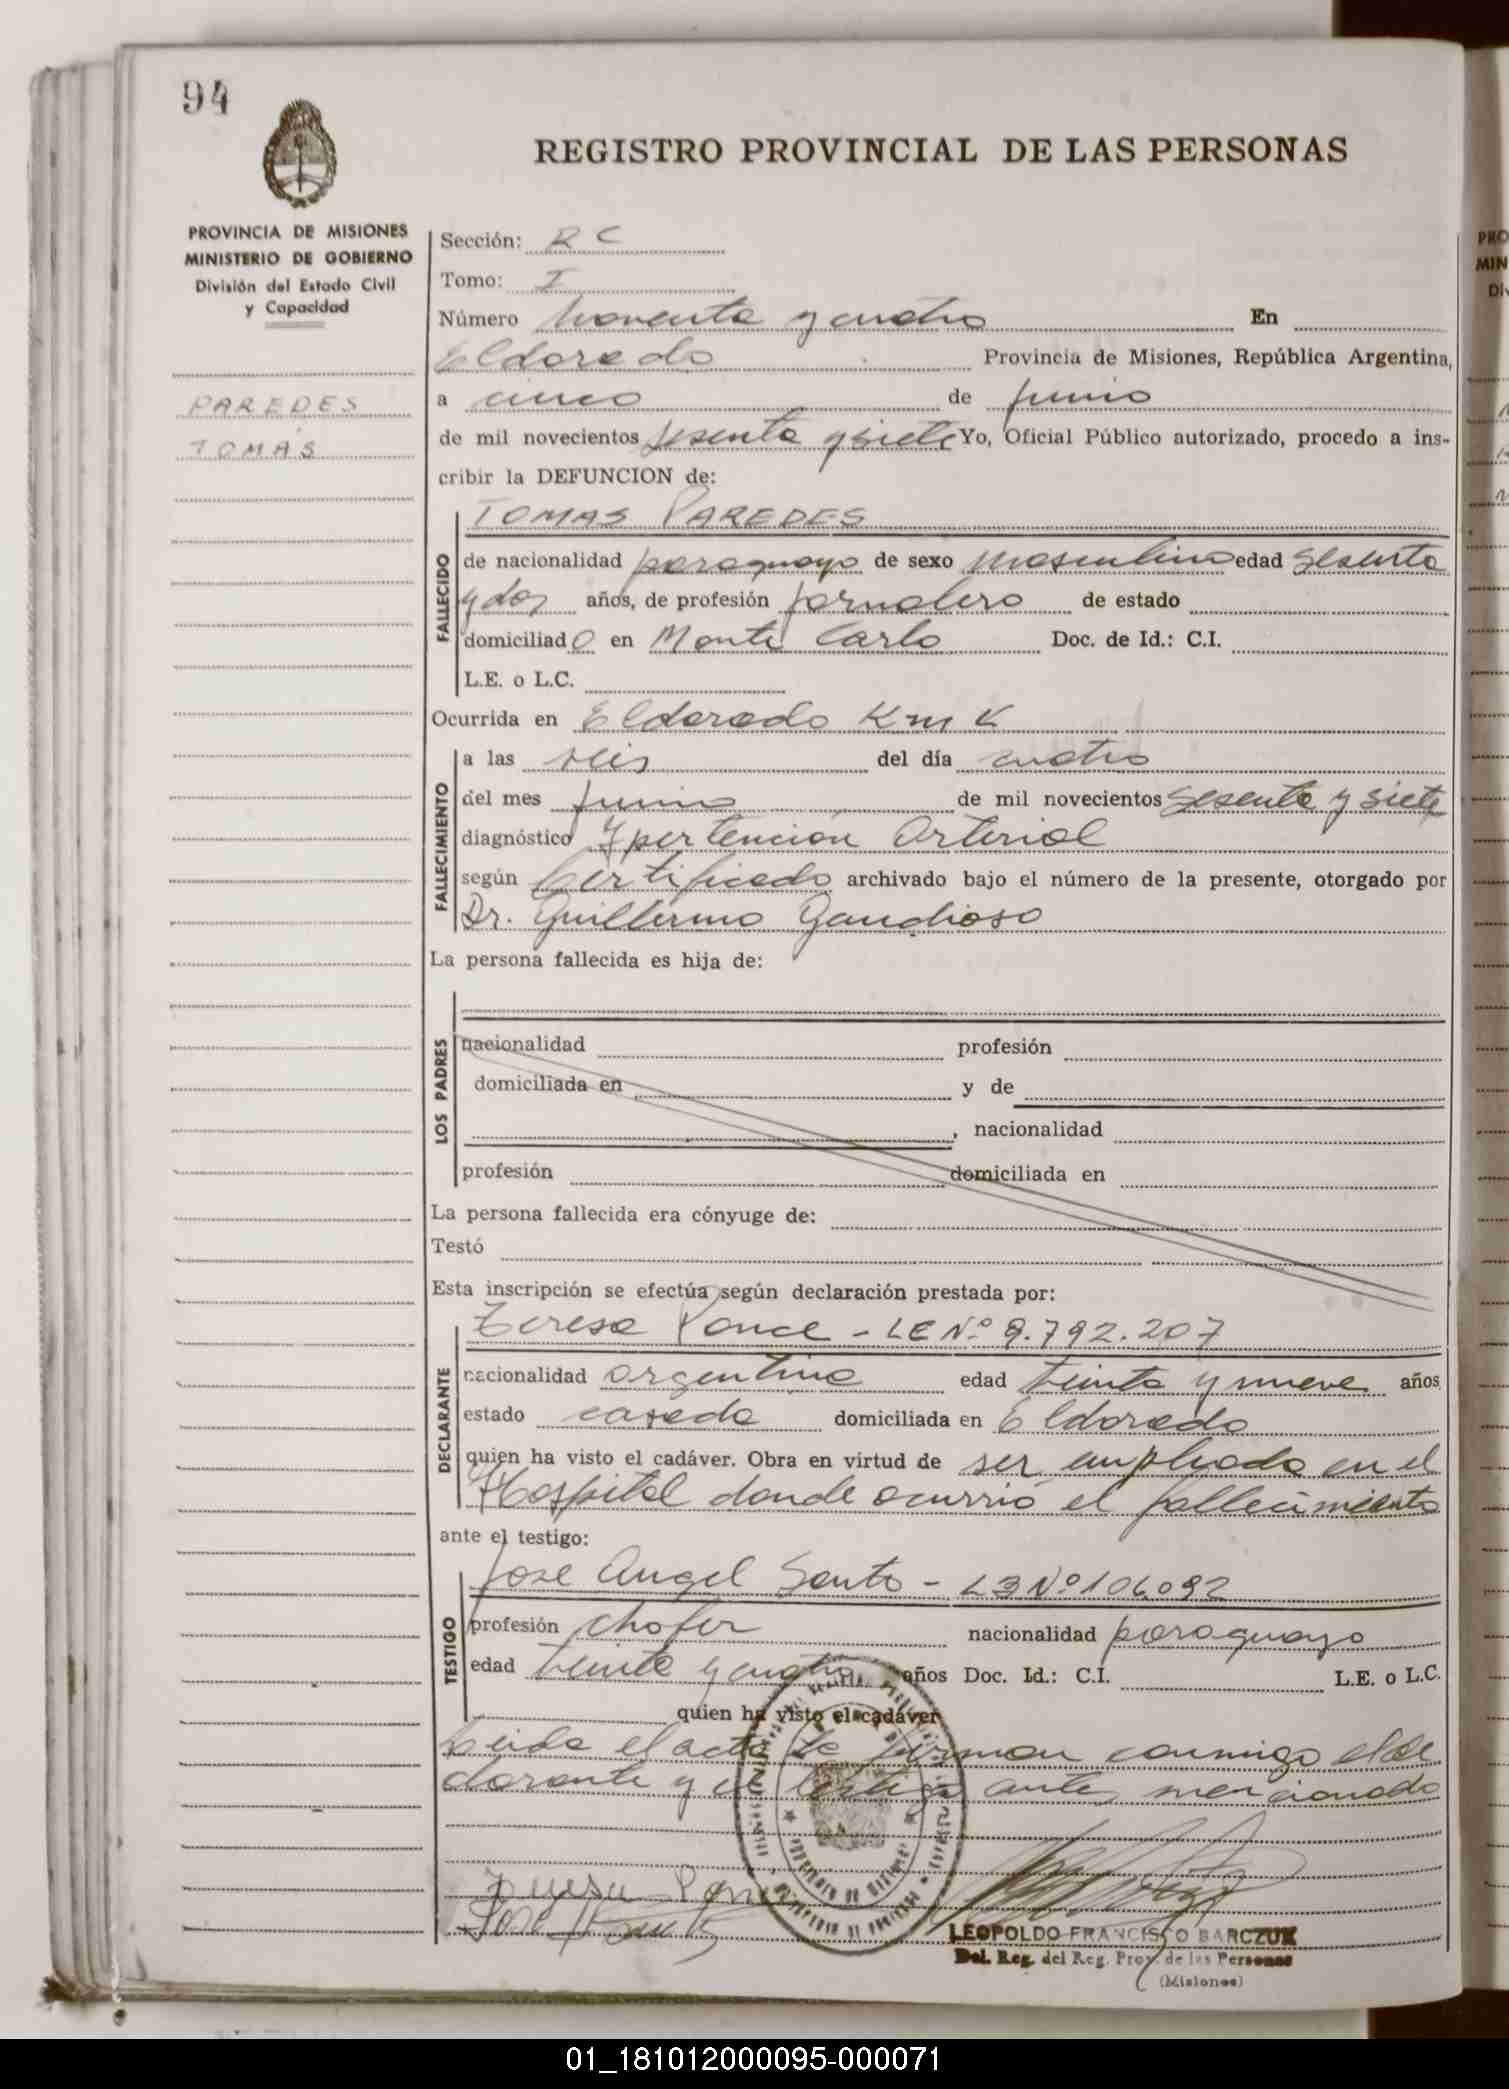 94
REGISTRO PROVINCIAL DE LAS PERSONAS
PROVINCIA DE MISIONES
MINISTERIO DE GOBIERNO
División del Estado Civil
y Capacidad
PAREDES
TOMAS
Sección: R C
Tomo: I
Número Noventa y cuatro En
Eldorado Provincia de Misiones, República Argentina,
a cinco de junio
de mil novecientos sesenta y siete Yo, Oficial Público autorizado, procedo a ins-
cribir la DEFUNCION de:
FALLECIDO
TOMAS PAREDES
de nacionalidad paraguayo de sexo masculino edad sesenta
y dos años, de profesión jornalero de estado
domiciliado en Monte Carlo Doc. de Id.: C.I.
L.E. o L.C.
Ocurrida en Eldorado Km
FALLECIMIENTO
a las seis del día cuatro
del mes junio de mil novecientos sesenta y siete
diagnóstico Ypertención Arterial
según Certificado archivado bajo el número de la presente, otorgado por
Dr. Guillermo Gaudioso
La persona fallecida es hija de:
LOS PADRES
nacionalidad profesión
domiciliada en y de
, nacionalidad
profesión domiciliada en
La persona fallecida era cónyuge de:
Testó
Esta inscripción se efectúa según declaración prestada por:
DECLARANTE
Teresa Ponce - LE Nº 9.792.207
nacionalidad argentina edad treinta y nueve años
estado casada domiciliada en Eldorado
quien ha visto el cadáver. Obra en virtud de ser empleada en el
Hospital donde ocurrió el fallecimiento
ante el testigo:
TESTIGO
José Angel Santo - Nº 106092
profesión chofer nacionalidad paraguayo
edad treinta y cuatro años Doc. Id.: C.I. L.E. o L.C.
quien ha visto el cadáver
Leída el acta la firman conmigo el de
clarante y el testigo ante mencionado
Teresa Ponce
José
LEOPOLDO FRANCISCO BARCZUK
Del. Reg. del Reg. Prov. de las Personas
(Misiones)
01_181012000095-000071